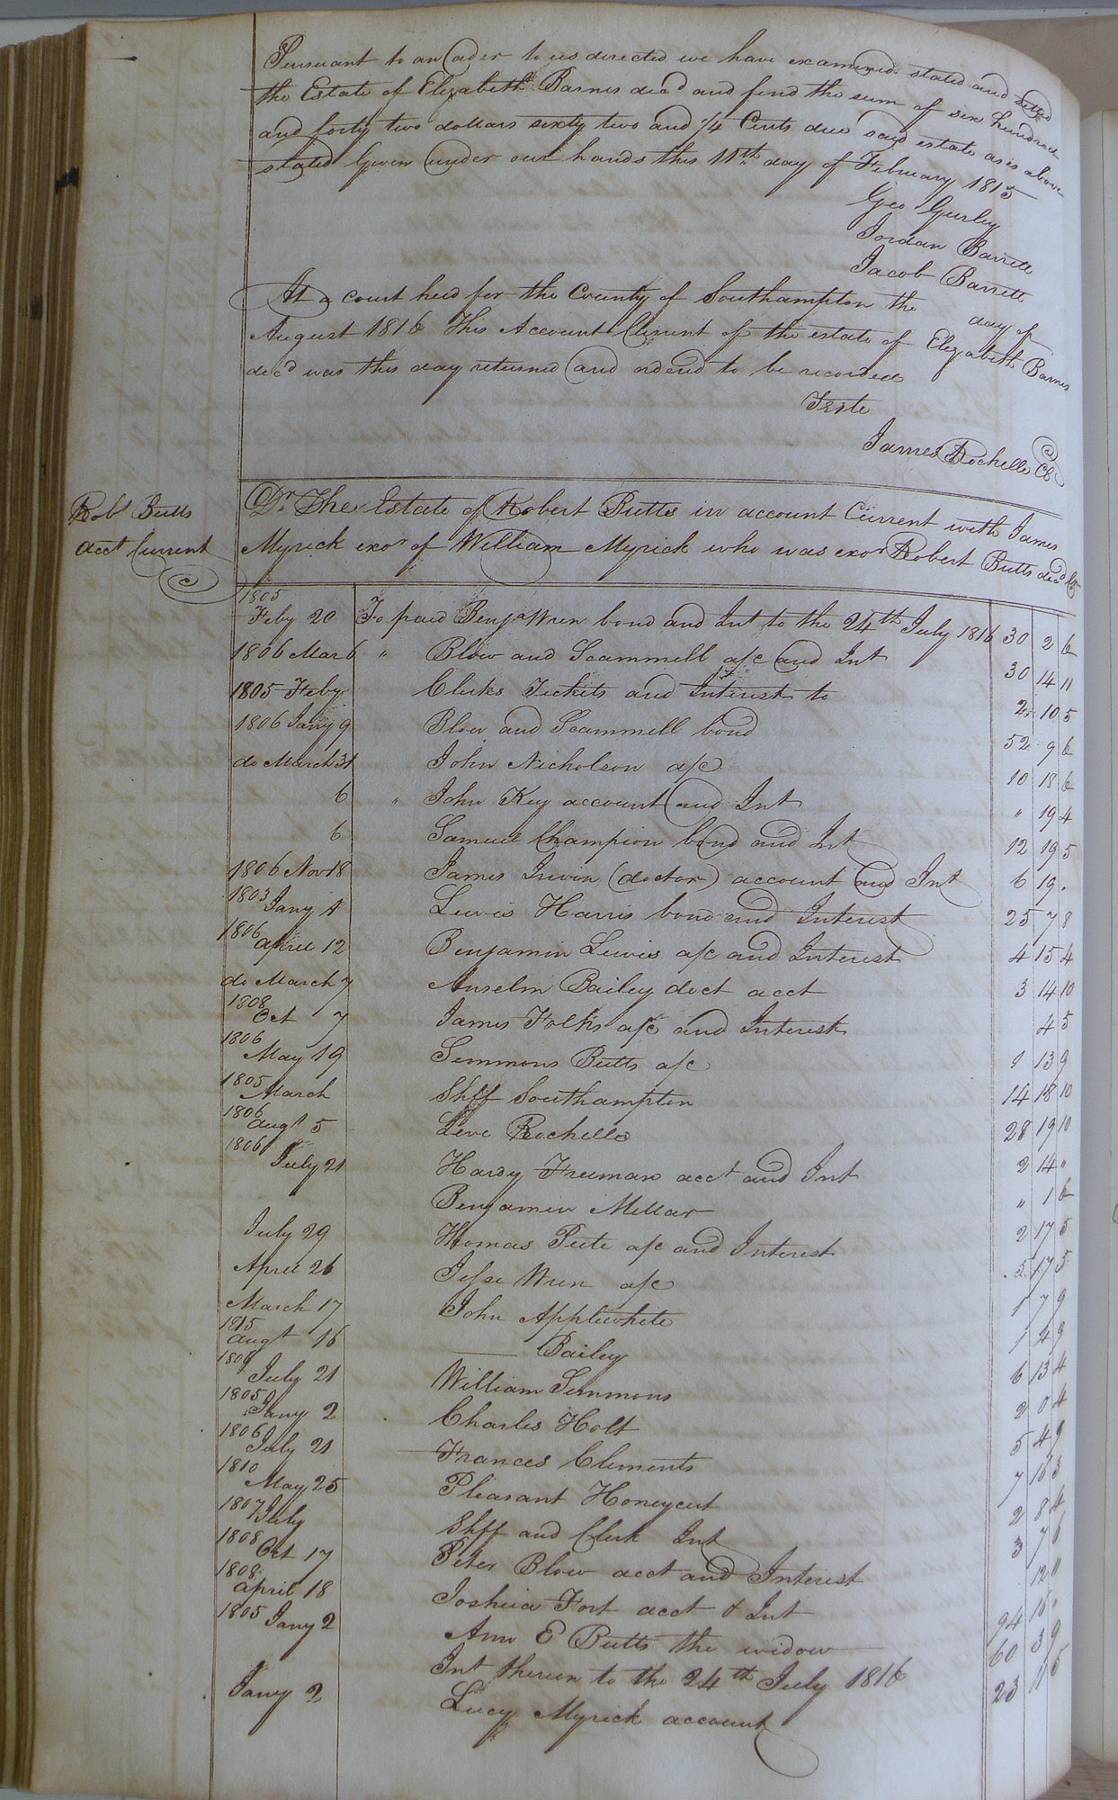 Pursuant to an order to us directed we have examined stated and settled
the Estate of Elizabeth Barnes decd and find the sum of six hundred
and forty two dollars sixty two and 1/4 Cents due said estate as is above
stated Given under our hands this 11th day of February 1815
Geo Gurley
Jordan Barrett
Jacob Barrett
At a court held for the County of Southampton the day of
August 1816 This Account Current of the estate of Elizabeth Barnes
decd was this day returned and orderd to be recorded
Teste
James Rochelle Cl
Robt Butts
acct Current
Dr The Estate of Robert Butts in account Current with James
Myrick exor of William Myrick who was exor Robert Butts decd
1805
Feby 20 To paid Benja Wren bond and Int to the 24th July 1816 30 2 6
1806 Mar 6 " Blow and Scammell a/c and Int 30 14 11
1805 Feby Clerks Tickets and Interest to 2 10 5
1806 Jany 9 Blow and Scammell bond 52 9 6
do March 31 John Nicholson a/c 10 18 6
6 " John Key account and Int " 19 4
6 Samuel Champion bond and Int 12 19 5
1806 Nov 18 James Irwin (doctor) account and Int 6 19 .
1803 Jany 1 Lewis Harris bond and Interest 25 7 8
1806 April 12 Benjamin Lewis a/c and Interest 4 15 4
do March 7 Anselm Bailey doct acct 3 14 10
1808 Oct 7 James Folks a/c and Interest 4 5
1806 May 19 Simmons Butts a/c 1 13 9
1805 March Shff Southampton 14 18 10
1806 Augt 5 Levi Rochelle 28 19 10
1806 July 21 Hardy Freeman acct and Int 2 14 "
Benjamin Millar " 1 6
July 29 Thomas Peete a/c and Interest 2 17 5
April 26 Jesse Wren a/c 5 17 5
March 17 John Applewhite 1 7 9
1815 Augt 16 —— Bailey 1 4 9
1809 July 21 William Simmons 6 13 4
1805 Jany 2 Charles Holt 2 0 4
1806 July 21 Frances Clements 5 4 9
1810 May 25 Pleasant Honeycut 7 16 3
1807 July Shff and Clerk Int 2 8 4
1808 Oct 17 Peter Blow acct and Interest 3 7 6
1808 April 18 Joshua Fort acct & Int 12 11
1805 Jany 2 Ann E Butts the widow 94 16 .
Int thereon to the 24th July 1816 60 3 9
Jany 2 Lucy Myrick account 23 11 5